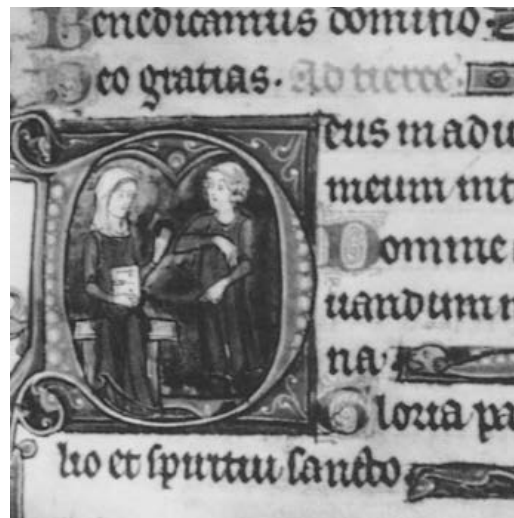 Benedicamus domino.
Deo gratias. Ad tierce.
Deus in adiu
meum int
Domine
uandum m
na.
Gloria pa
lio et spiritui sancto